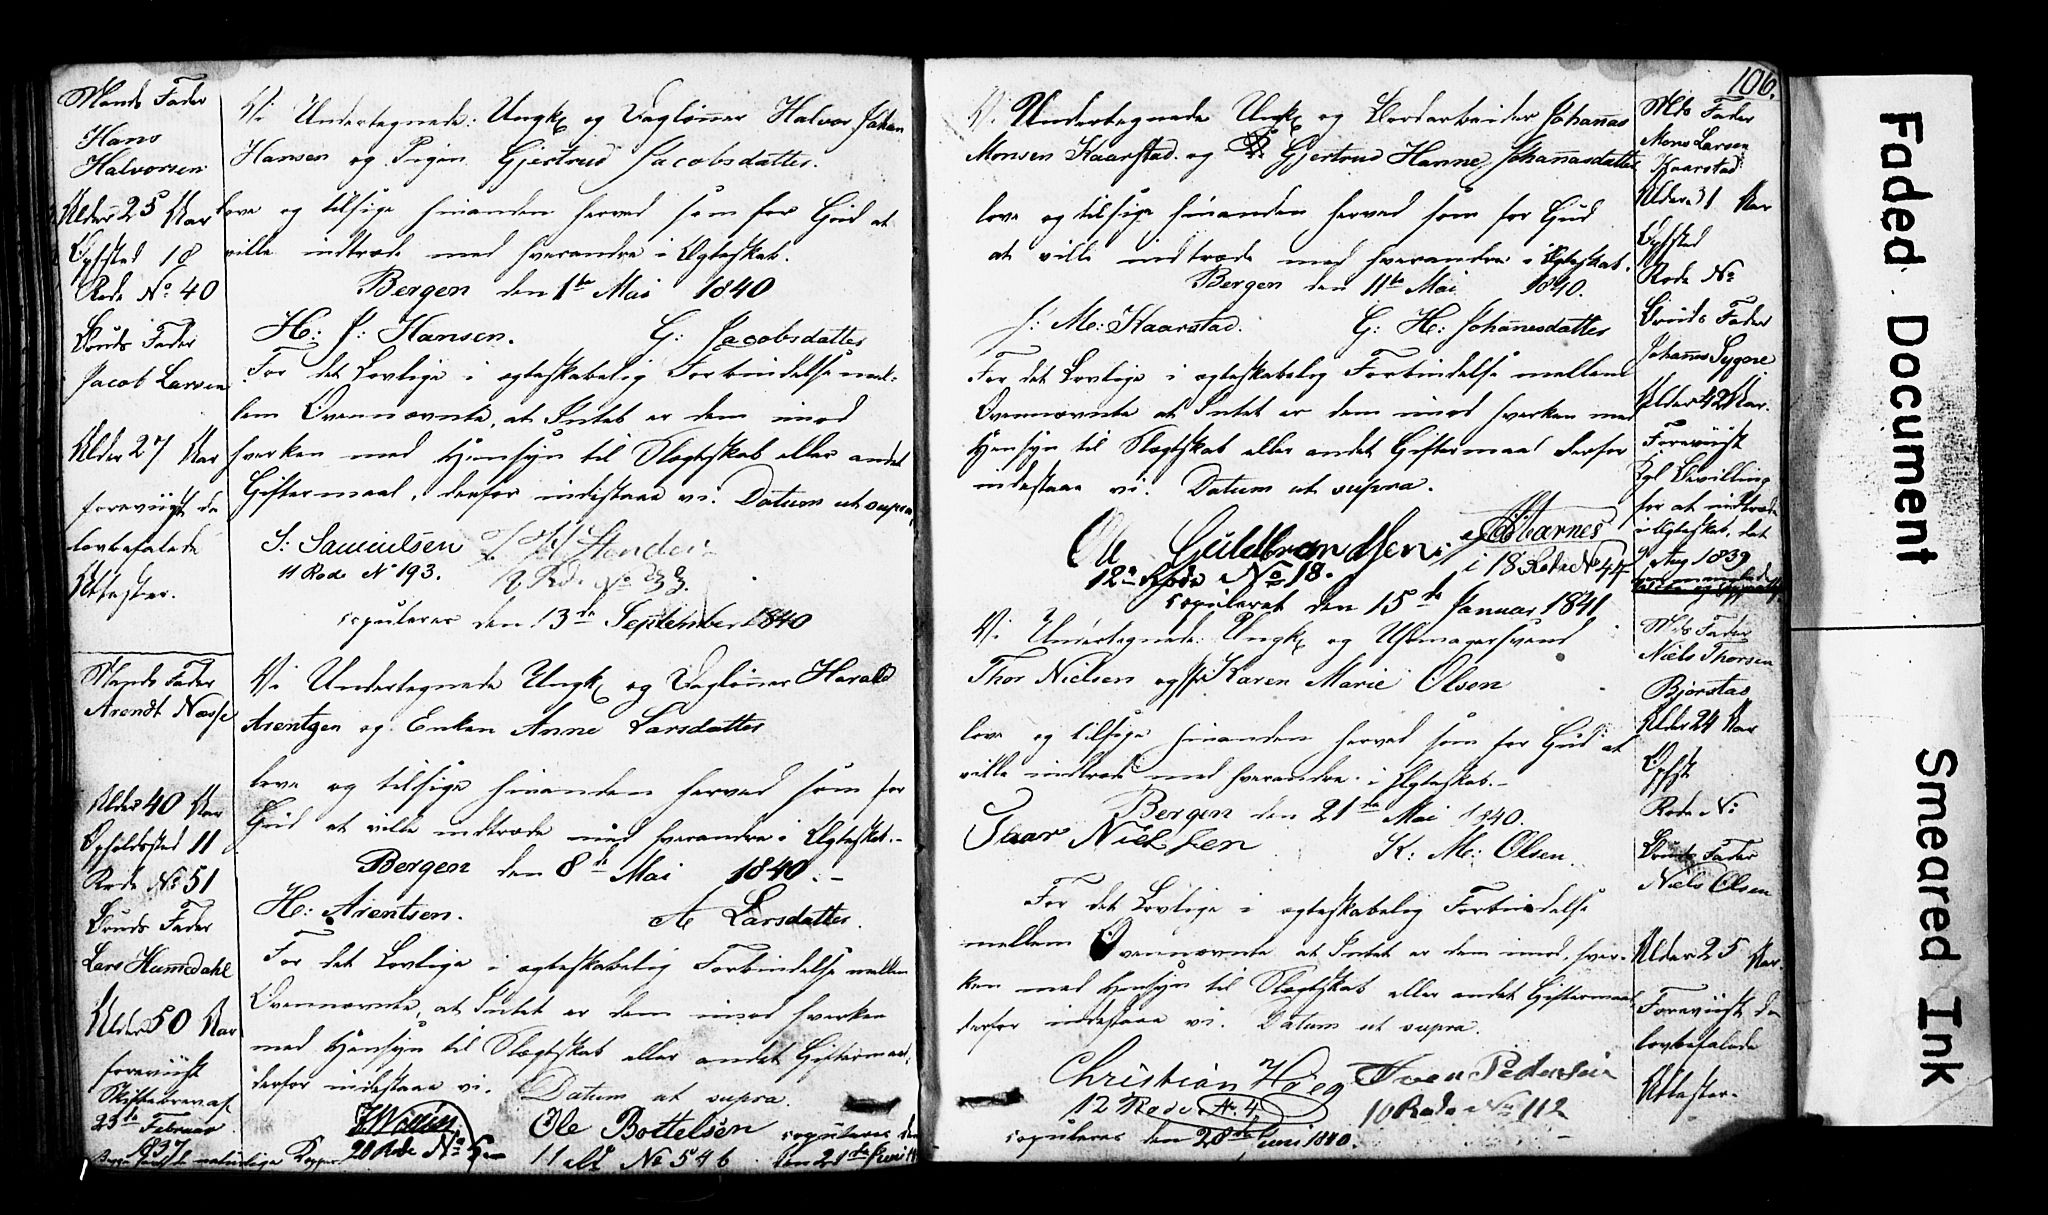 Mands Fader
Hans
Halvorsen
Alder 25 Aar
Opholdsted 18
Rode No 40
Bruds Fader
Jacob Larsen
Alder 27 Aar
foreviist de
lovbefalede
Attester.
Vi Undertegnede: Ungk og Daglønner Halvor Johan
Hansen og Pigen Gjertrud Jacobsdatter.
love og tilsige hinanden herved som for Gud at
ville indtræde med hverandre i Ægteskab.
Bergen den 1te Mai 1840
H: J: Hansen. G: Jacobsdatter
For det Lovlige i ægteskabelig Forbindelse mel-
lem Ovennævnte, at Intet er dem imod
hverken med Hensyn til Slægtskab eller andet
Giftermaal, derfor indestaae vi. Datum ut supra,
S: Samuelsen
11 Rode No 193. Rode No 33.
copuleret den 13de September 1840
Mands Fader
Arendt Næsse
Alder 40 Aar
Opholdssted 11
Rode No 51
Bruds Fader
Lars Humedahl
Alder 50 Aar
foreviist
Skiftebrev af
23de Februar
1837
Vi Undertegnede Ungk og Daglønner Harald
Arentzen og Enken Anne Larsdatter
love og tilsige hinanden herved som for
Gud at ville indtræde med hverandre i Ægteskab.-
Bergen den 8de Mai 1840.-
H: Arentsen. A Larsdatter
For det Lovlige i ægteskabelig Forbindelse mellem
Ovennævnte, at Intet er dem imod hverken
med Hensyn til Slægtskab eller andet Giftermaal,
derfor indestaae vi. Datum ut supra.
Ole Bottelsen copuleret den
20 Rode No No 546 den 21de Juni
106.
Vi Undertegnede Ungk og Bordarbeider Johannes
Monsen Kaarstad og Gjertrud Hanne Johannesdatter
love og tilsige hinanden herved som for Gud
at ville indtræde med hverandre i Ægteskab.
Bergen den 11te Mai 1840.
J: M: Kaarstad. G: H: Johannesdatter
For det Lovlige i ægteskabelig Forbindelse mellem
Ovennævnte at Intet er dem imod hverken med
Hensyn til Slægtskab eller andet Giftermaal derfor
indestaae vi. Datum ut supra.
Ole Guldbrandsen
12te Rode No 18. i 18 Rode No 44
copuleret den 15de Januar 1841
Mds Fader
Mons Larsen
Kaarstad
Alder 31 Aar
Ophsted
Rode No
Bruds Fader
Johannes Sygore
Alder 42 Aar.
Foreviist
Kgl Bevilling
for at indtræde
i Ægteskab, dat
7 Aug 1839
Vi Undertegnede: Ungk og Uhrmagersvend
Thor Nielsen og Karen Marie Olsen
love og tilsige hinanden herved som for Gud at
ville indtræde med hverandre i Ægteskab.-
Bergen den 21de Mai 1840.
Thor Nielsen K: M: Olsen.
For det Lovlige i ægteskabelig Forbindelse
mellem Ovennævnte at Intet er dem imod, hver-
ken med Hensyn til Slægtskab eller andet Giftermaal
derfor indestaae vi. Datum ut supra.
Christian Høeg Iver Pedersen
12 Rode No 4, 10 Rode No 112
copuleret den 28de Juni 1840.
Mds Fader
Niels Thorsen
Bjørstad
Alder 24 Aar
Ophst
Rode No
Bruds Fader
Niels Olsen
Alder 25 Aar.
Foreviist de
lovbefalede
Attester.
Faded Document
Smeared Ink